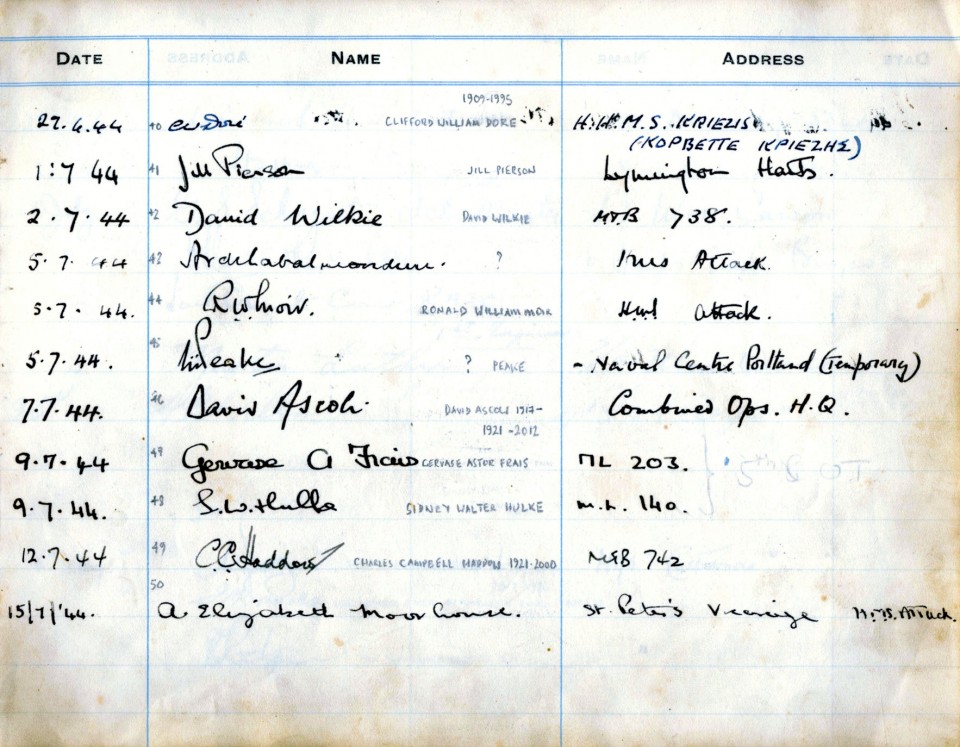 DATE NAME ADDRESS
1909-1995
27.6.44 40 CW Doré CLIFFORD WILLIAM DORE H.H.M.S. KRIEZIS
(ΚΟΡΒΕΤΤΕ ΚΡΙΕΖΗΣ)
1:7 44 41 Jill Pierson JILL PIERSON Lymington Hants.
2.7.44 42 David Wilkie DAVID WILKIE MTB 738.
5.7.44 43 ? HMS Attack.
5.7.44. 44 R W Moir. RONALD WILLIAM MOIR HMS Attack.
5.7.44. 45 Peake ? PEAKE - Naval Centre Portland (Temporary)
7.7.44. 46 David Ascoli. DAVID ASCOLI 1917- Combined Ops. H.Q.
1921-2012
9.7.44 Gervase A Frais GERVASE ASTOR FRAIS ML 203.
9.7.44. 48 S.W. Hulke SIDNEY WALTER HULKE M.L. 140.
12.7.44 49 C C Haddow CHARLES CAMPBELL HADDOW 1921-2000 MTB 742
50
15/7/'44. A Elizabeth Moorhouse. St. Peter's Vicarage H.M.S. Attack.